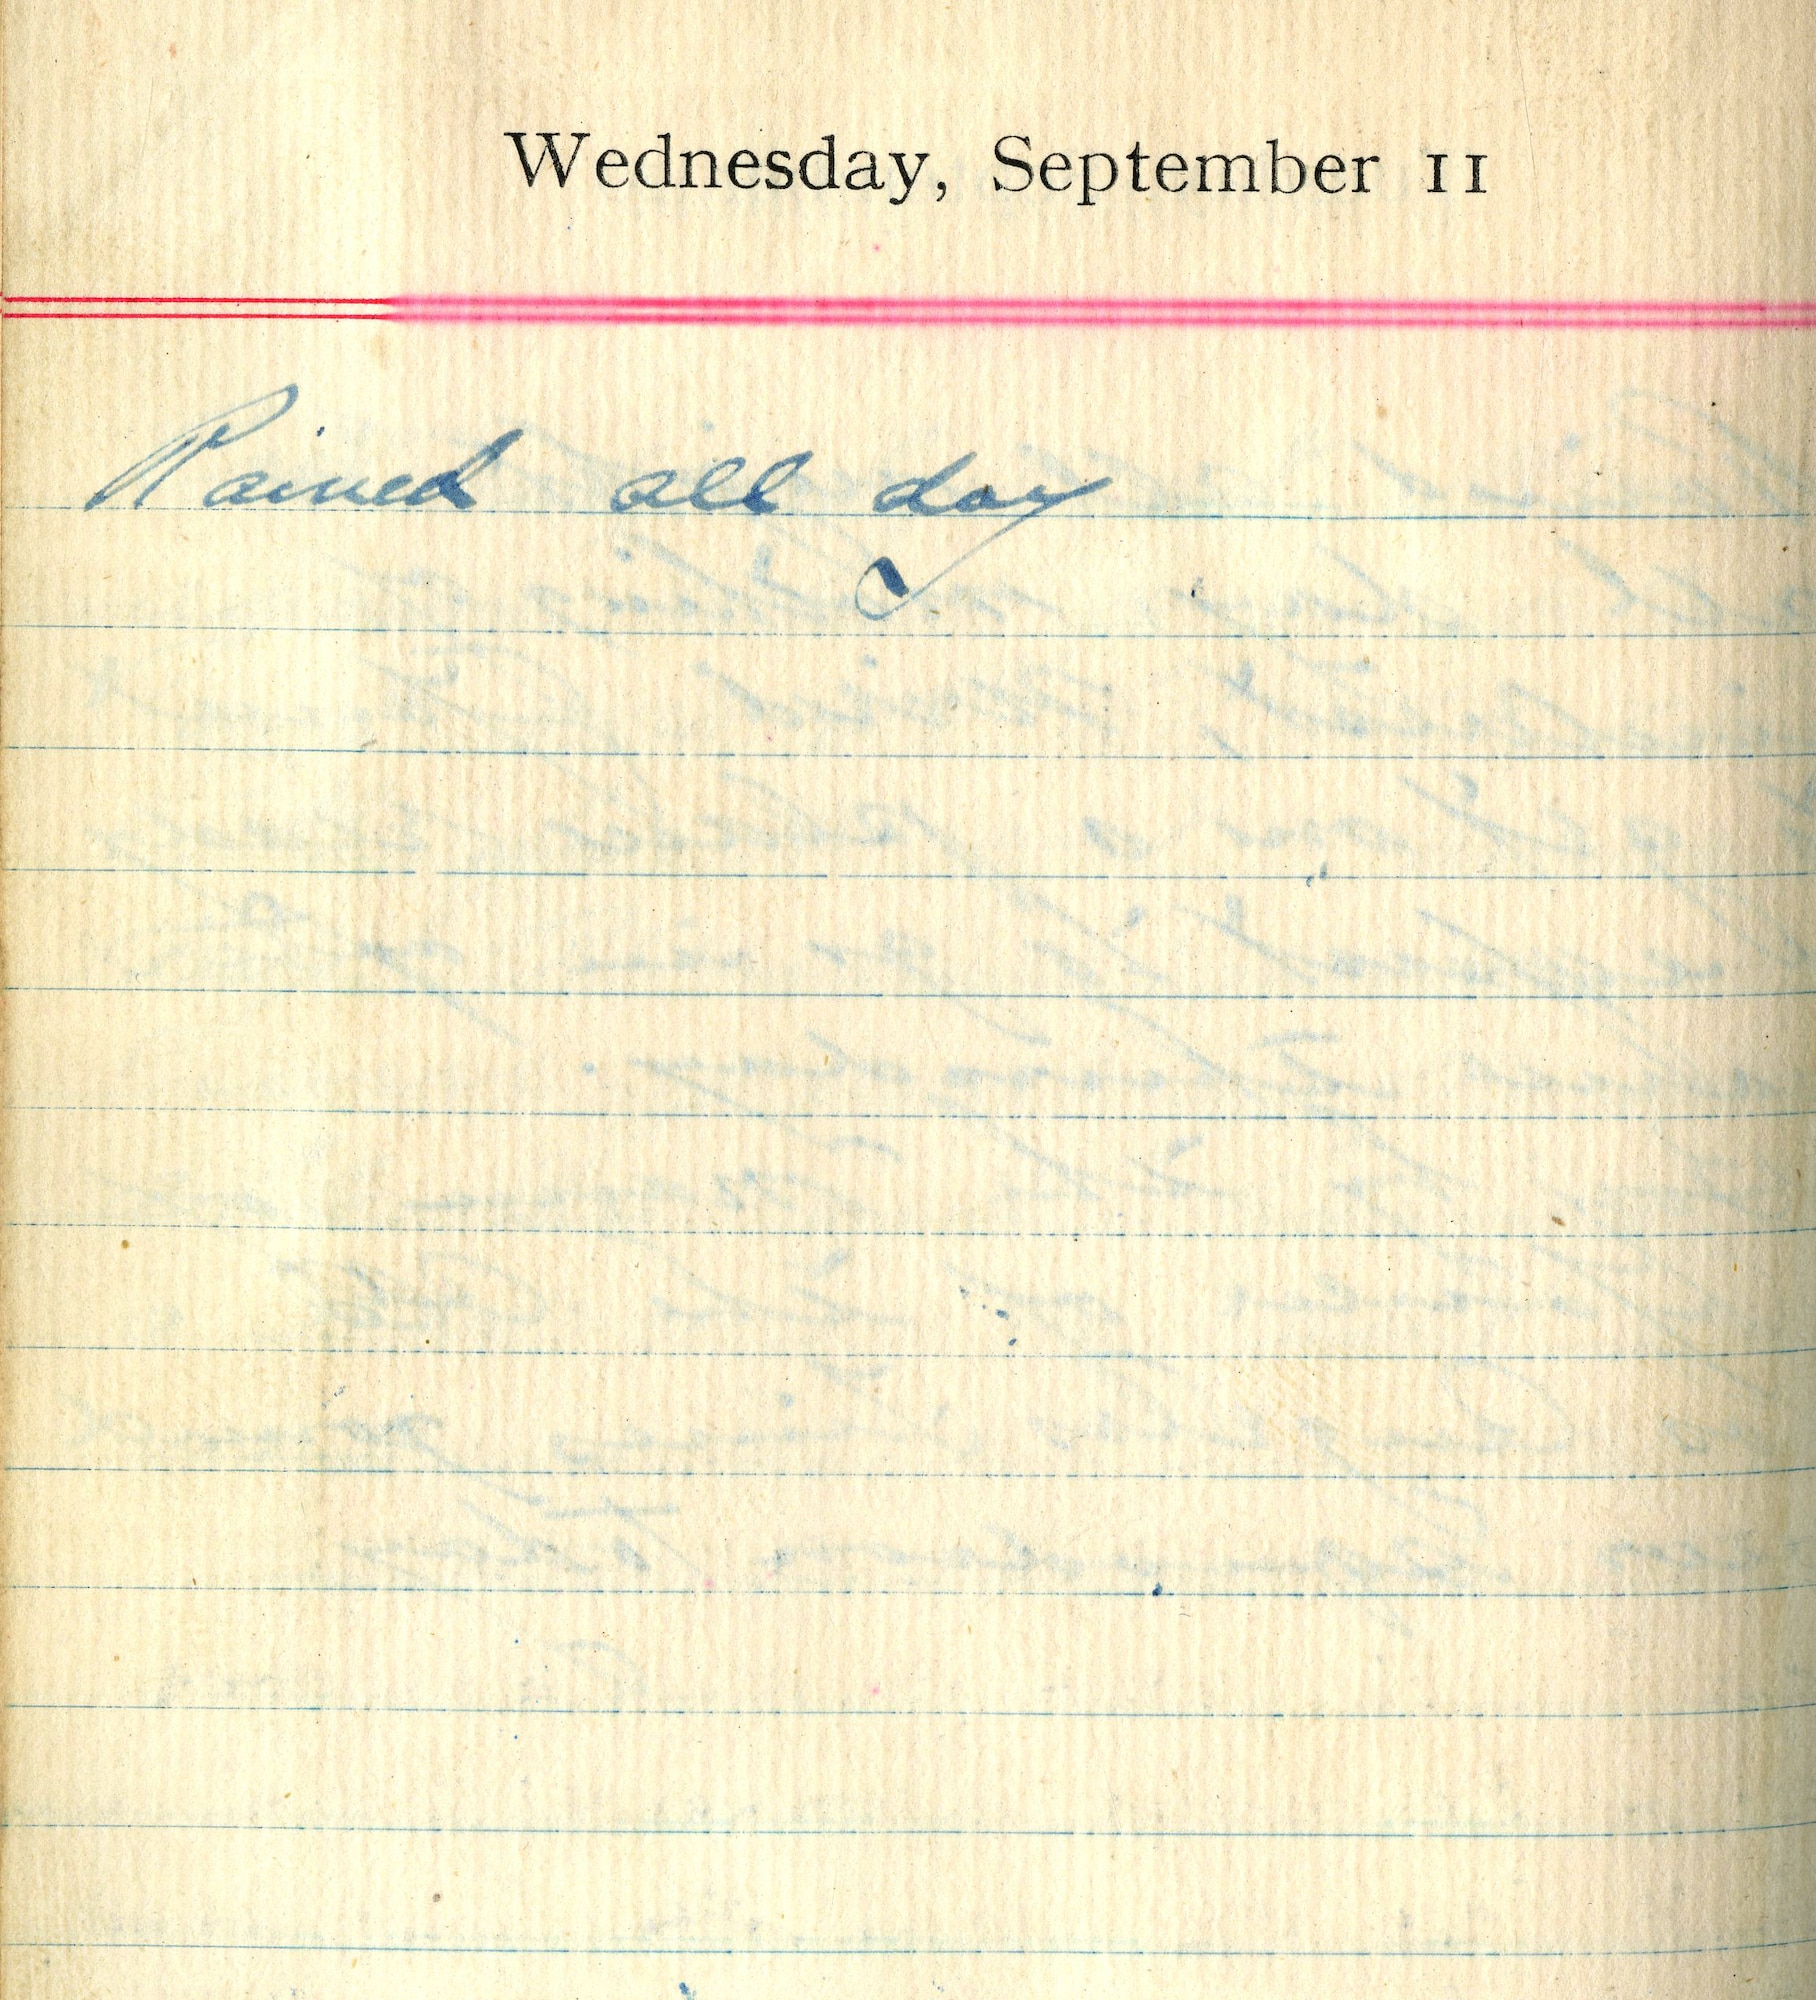 Wednesday, September 11
Rained all day